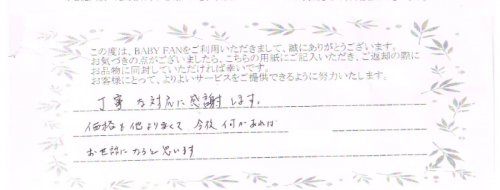 この度は、BABY FANをご利用いただきまして、誠にありがとうございます。
お気づきの点がございましたら、こちらの用紙にご記入いただき、ご返却の際に
お品物に同封していただければ幸いです。
お客様にとって、よりよいサービスをご提供できるように努力いたします。
丁寧な対応に感謝します。
価格も他より安くて 今後 何かあれば
お世話になろうと思います